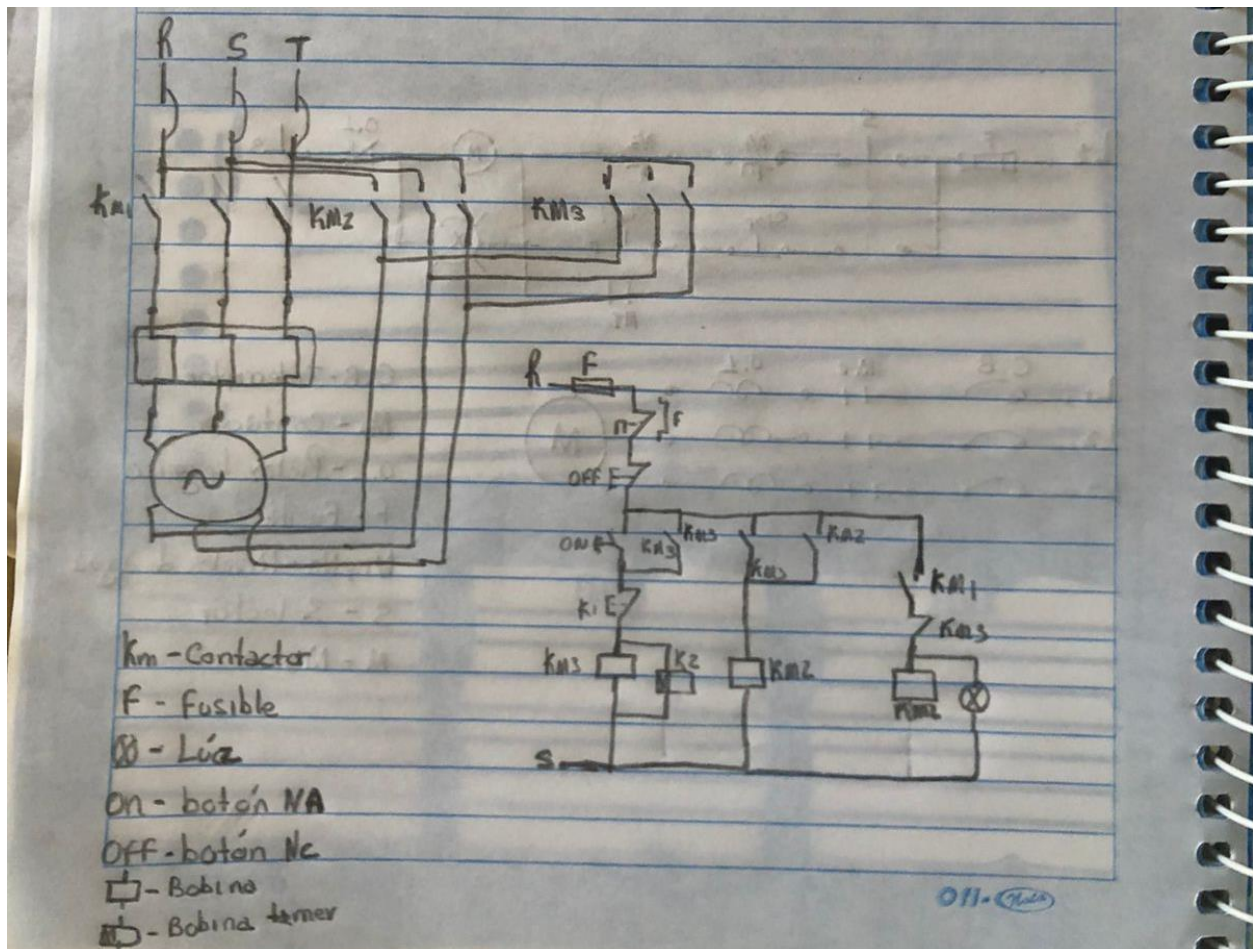 R S T
KM1 KM2 KM3
R F
F
OFF E
ON E KM3 KM3 KM3 KM2
KM1
K1 E KM3
KM3 K2 KM2 KM2
S
Km - Contactor
F - Fusible
⊗ - Lúz
On - botón NA
Off - botón Nc
- Bobina
- Bobina temer
011-